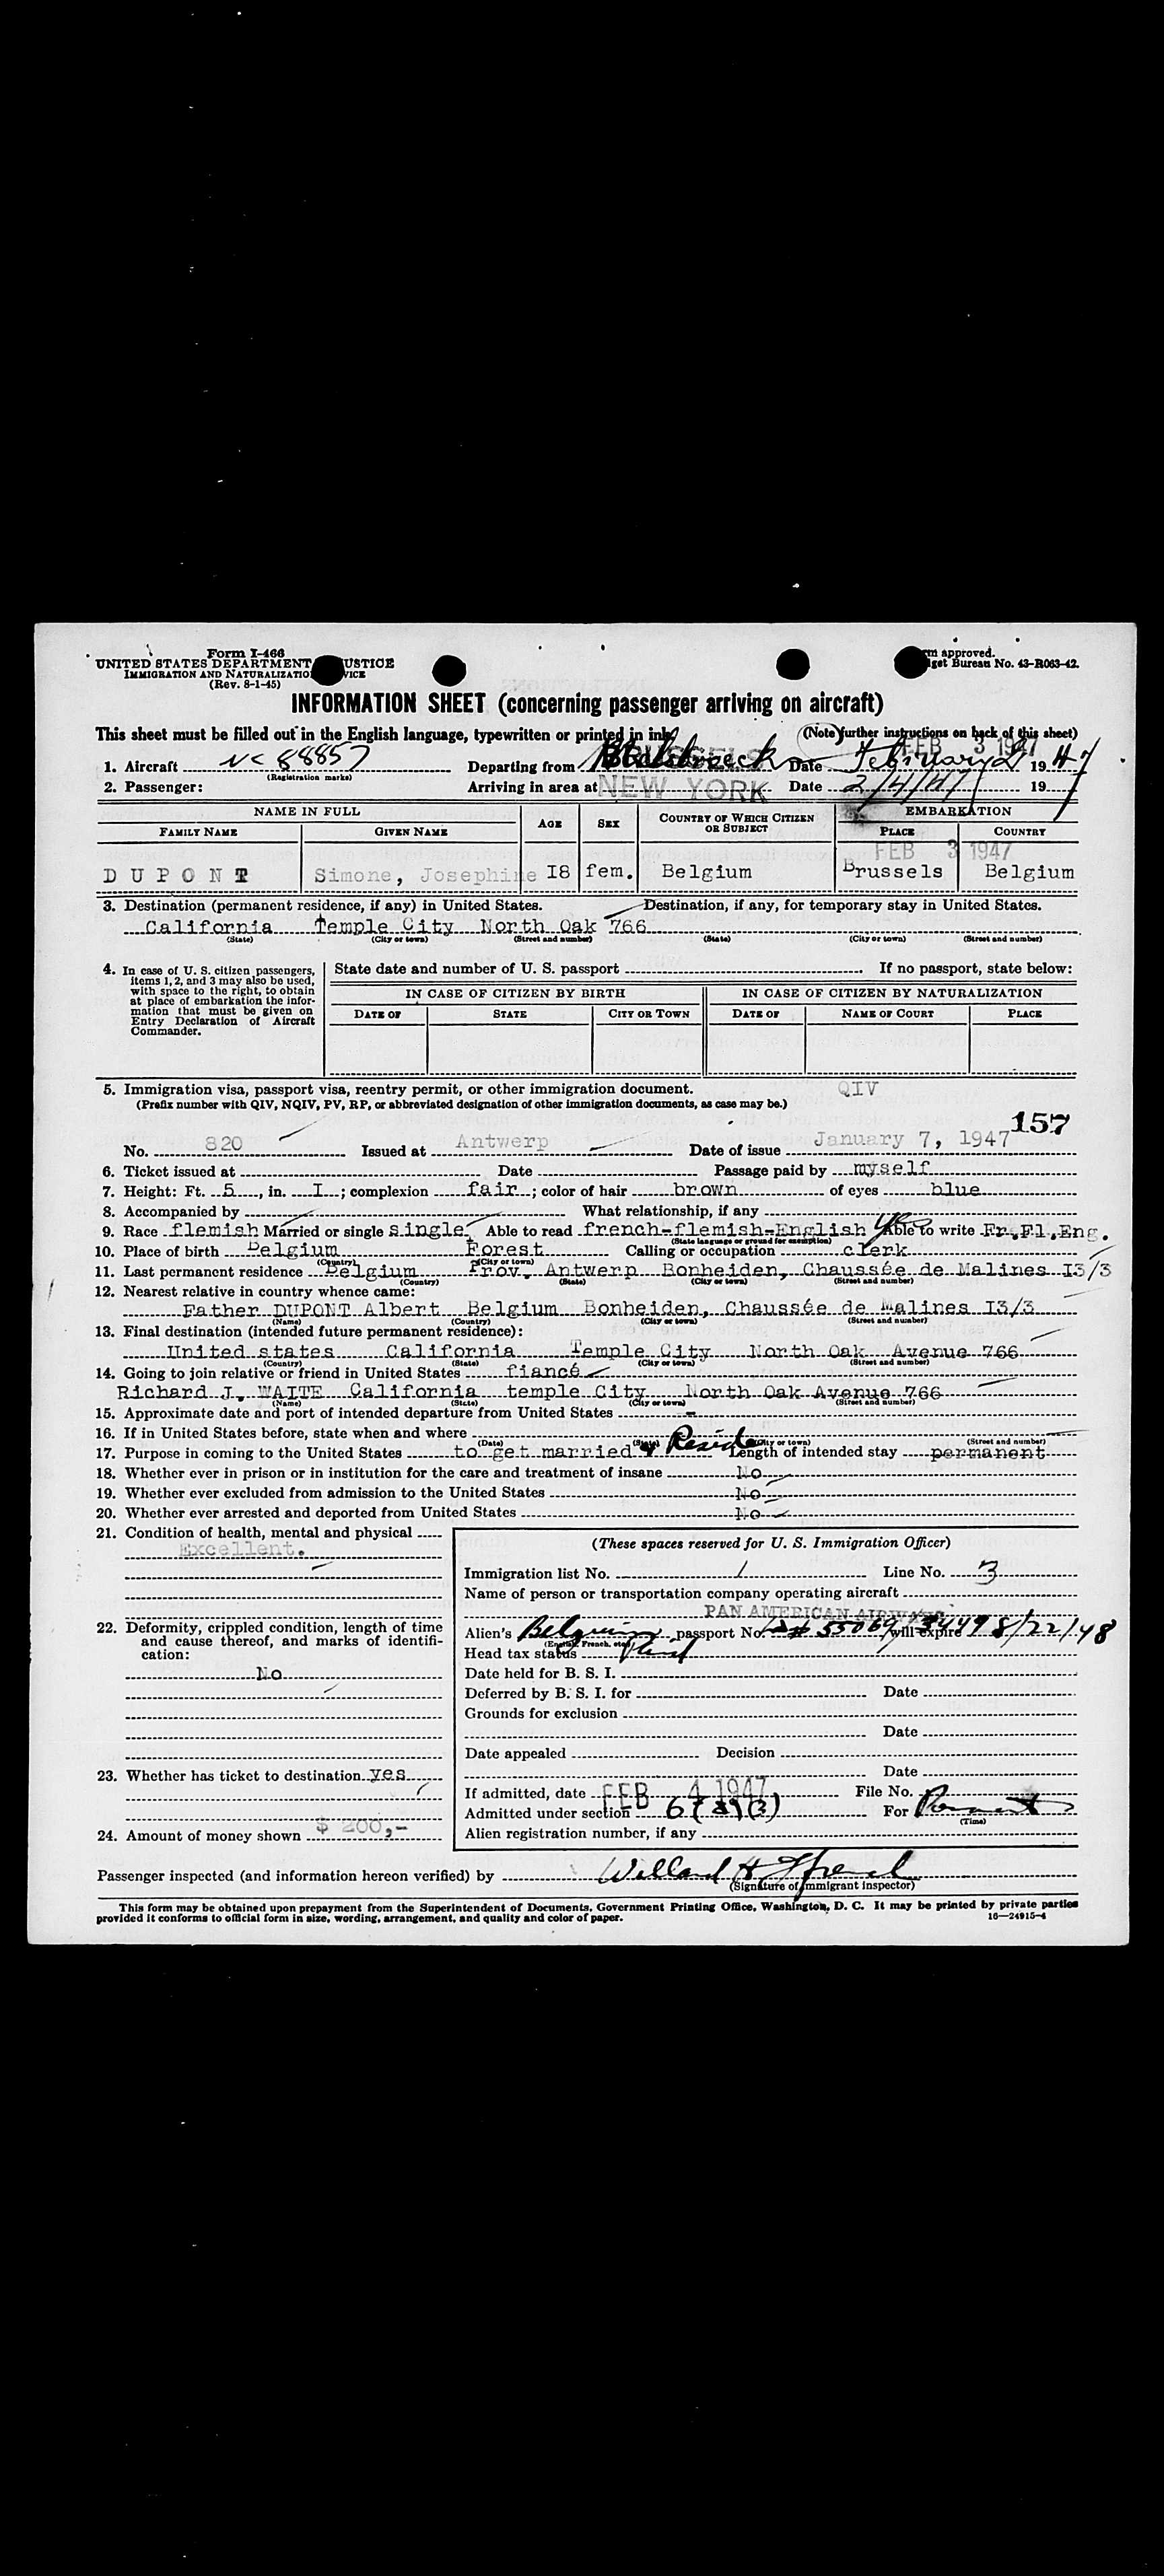 Form I-466
UNITED STATES DEPARTMENT USTICE
IMMIGRATION AND NATURALIZATIO VICE
(Rev. 8-1-45)
rm approved.
get Bureau No. 43-R063-42.
INFORMATION SHEET (concerning passenger arriving on aircraft)
This sheet must be filled out in the English language, typewritten or printed in ink. (Note further instructions on back of this sheet)
FEB 3 1947
1. Aircraft NC 88857 Departing from BRUSSELS Date February 19 47
(Registration marks)
2. Passenger: Arriving in area at NEW YORK Date 2/4/47 19
NAME IN FULL AGE SEX COUNTRY OF WHICH CITIZEN OR SUBJECT EMBARKATION
FAMILY NAME GIVEN NAME PLACE COUNTRY
FEB 3 1947
DUPONT Simone, Josephine I8 fem. Belgium Brussels Belgium
3. Destination (permanent residence, if any) in United States. Destination, if any, for temporary stay in United States.
California Temple City North Oak 766
(State) (City or town) (Street and number) (State) (City or town) (Street and number)
4. In case of U. S. citizen passengers, items 1, 2, and 3 may also be used, with space to the right, to obtain at place of embarkation the information that must be given on Entry Declaration of Aircraft Commander.
State date and number of U. S. passport If no passport, state below:
IN CASE OF CITIZEN BY BIRTH IN CASE OF CITIZEN BY NATURALIZATION
DATE OF STATE CITY OR TOWN DATE OF NAME OF COURT PLACE
5. Immigration visa, passport visa, reentry permit, or other immigration document. QIV
(Prefix number with QIV, NQIV, PV, RP, or abbreviated designation of other immigration documents, as case may be.)
157
No. 820 Issued at Antwerp Date of issue January 7, 1947
6. Ticket issued at Date Passage paid by myself
7. Height: Ft. 5, in. I; complexion fair; color of hair brown of eyes blue
8. Accompanied by What relationship, if any
9. Race flemish Married or single single, Able to read french-flemish-English yes Able to write Fr.Fl.Eng.
(State language or ground for exemption)
10. Place of birth Belgium Forest Calling or occupation clerk
(Country) (City or town)
11. Last permanent residence Belgium Prov. Antwerp Bonheiden, Chaussée de Malines I3/3
(Country) (State) (City or town) (Street and number)
12. Nearest relative in country whence came:
Father DUPONT Albert Belgium Bonheiden, Chaussée de Malines I3/3
(Name) (Country) (City or town) (Street and number)
13. Final destination (intended future permanent residence):
United states California Temple City North Oak Avenue 766
(Country) (State) (City or town) (Street and number)
14. Going to join relative or friend in United States fiancé
Richard J. WAITE California temple City North Oak Avenue 766
(Name) (State) (City or town) (Street and number)
15. Approximate date and port of intended departure from United States -
16. If in United States before, state when and where
(Date) (State) (City or town) (Street and number)
17. Purpose in coming to the United States to get married & Reside Length of intended stay permanent
18. Whether ever in prison or in institution for the care and treatment of insane No
19. Whether ever excluded from admission to the United States No
20. Whether ever arrested and deported from United States No
21. Condition of health, mental and physical
Excellent.
22. Deformity, crippled condition, length of time and cause thereof, and marks of identification:
No
23. Whether has ticket to destination yes
24. Amount of money shown $ 200,-
(These spaces reserved for U. S. Immigration Officer)
Immigration list No. 1 Line No. 3
Name of person or transportation company operating aircraft
PAN AMERICAN AIRWAYS
Alien's Belgium passport No. 55069/3449 will expire 8/22/48
(English, French, etc.)
Head tax status Paid
Date held for B. S. I.
Deferred by B. S. I. for Date
Grounds for exclusion
Date
Date appealed Decision
Date
If admitted, date FEB 4 1947 File No.
Admitted under section 6(a)(3) For Permanent
(Time)
Alien registration number, if any
Passenger inspected (and information hereon verified) by Willard H.
(Signature of immigrant inspector)
This form may be obtained upon prepayment from the Superintendent of Documents, Government Printing Office, Washington, D. C. It may be printed by private parties
provided it conforms to official form in size, wording, arrangement, and quality and color of paper. 16—24915-4